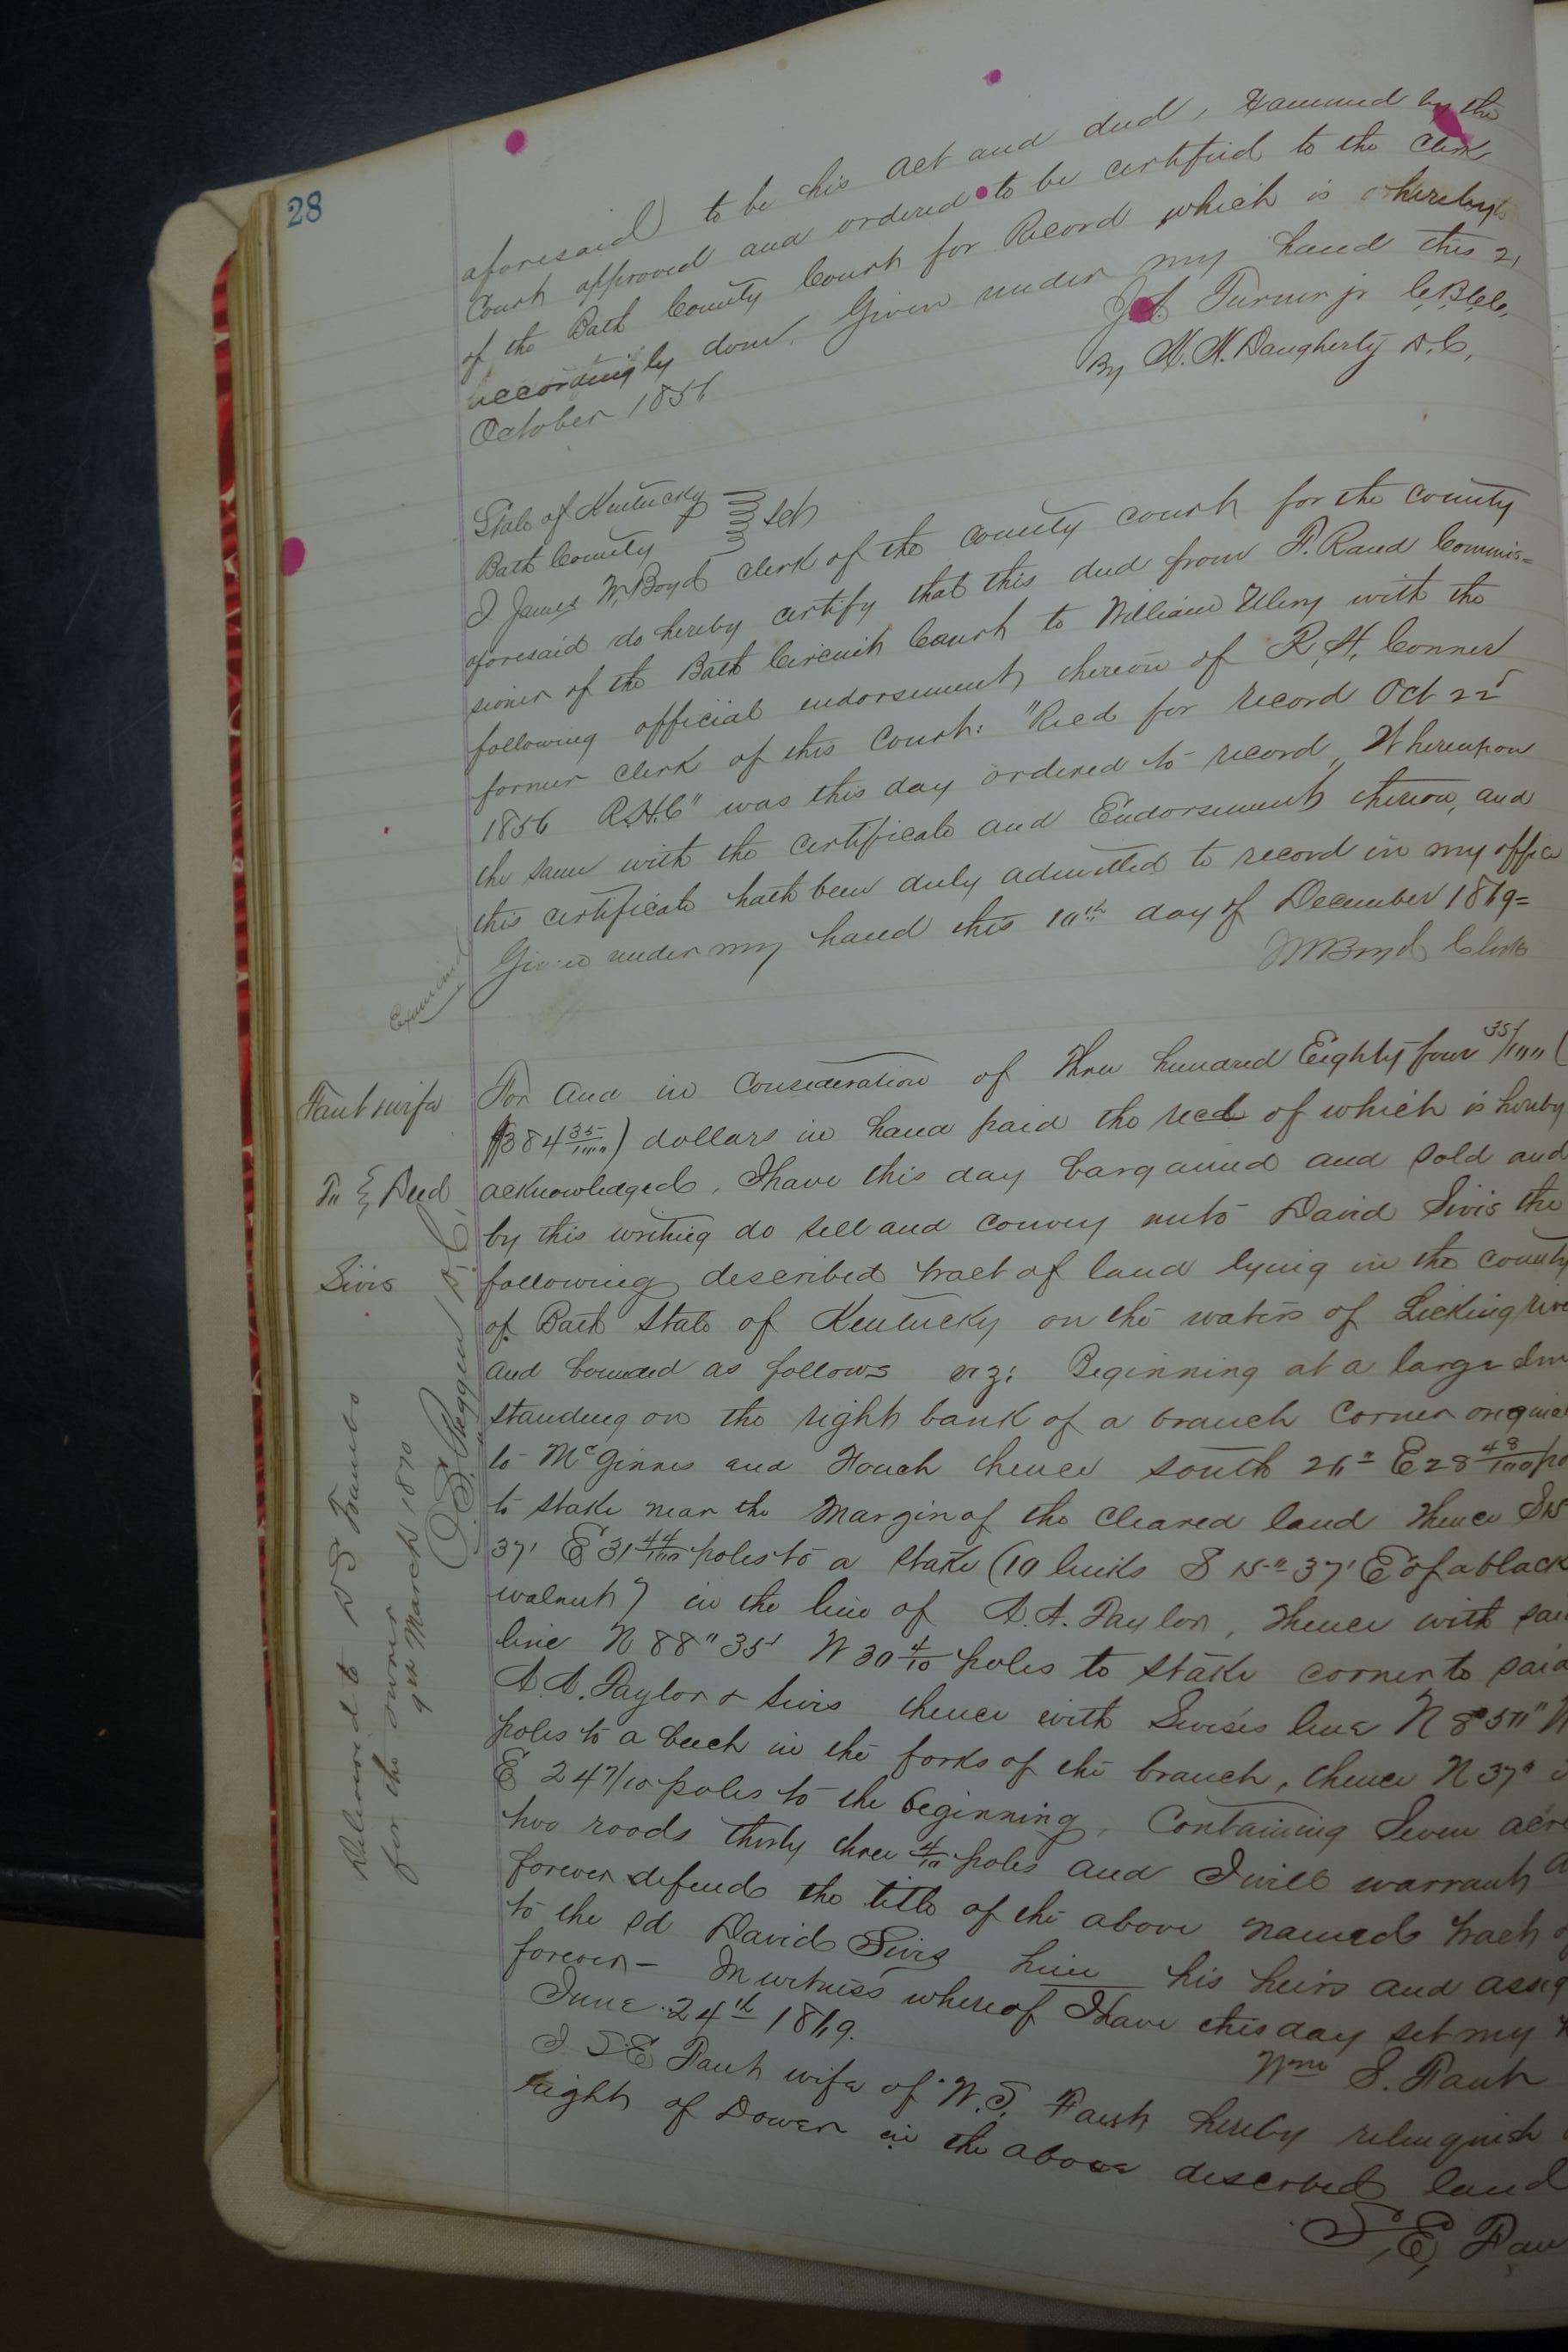 28
aforesaid to be his act and deed, Examined by the
Court approved and ordered to be certified to the Clerk
of the Bath County Court for Record which is hereby
accordingly done. Given under my hand this 21
October 1856
Turner jr C.B.C.C.
By Daugherty D.C.
State of Kentucky
Bath County } Sct
I James W. Boyd clerk of the county court for the county
aforesaid do hereby certify that this deed from F. Rand Commis=
sioner of the Bath Circuit Court to William Ulery with the
following official endorsement thereon of R, H, Conner
former clerk of this Court: "Recd for record Oct 22
1856 R.H.C" was this day ordered to record, Whereupon
the same with the certificate and Endorsement thereon, and
this certificate hath been duly admitted to record in my office
Given under my hand this 10th day of December 1869=
JWBoyd Clerk
Examined
Faut & wife
To } Deed
Sivis
For and in Consideration of Three hundred Eighty four 35/100 (
$384 35/100) dollars in hand paid the recd of which is hereby
acknowledged, I have this day bargained and sold and
by this writing do sell and convey unto David Sivis the
following described tract of land lying in the county
of Bath State of Kentucky on the waters of Licking
and bounded as follows viz: Beginning at a large
standing on the right bank of a branch Corner
to McGinnis and thence south 26° E 28 48/100
to stake near the margin of the cleared land Thence
37' E 31 44/100 poles to a stake (10 links S 15° 37' E of a black
walnut) in the line of A. A. Taylor, Thence with
line N 88° 35' W 30 4/10 poles to stake corner to said
A. A. Taylor & Sivis thence with Sivis's line N
poles to a beech in the forks of the branch, thence N 37°
E 24 7/10 poles to the beginning, Containing Seven
two roods thirty three 4/10 poles and I will warrant
forever defend the title of the above named tract
to the sd David Sivis him his heirs and
forever- In witness whereof I have this day set my
June 24th 1869.
Wm S. Faut
I S.E Faut wife of W. S. Faut hereby relinquish
right of Dower in the above described land
S, E,
Delivered to
for the owner
9th March 1870
D.C.